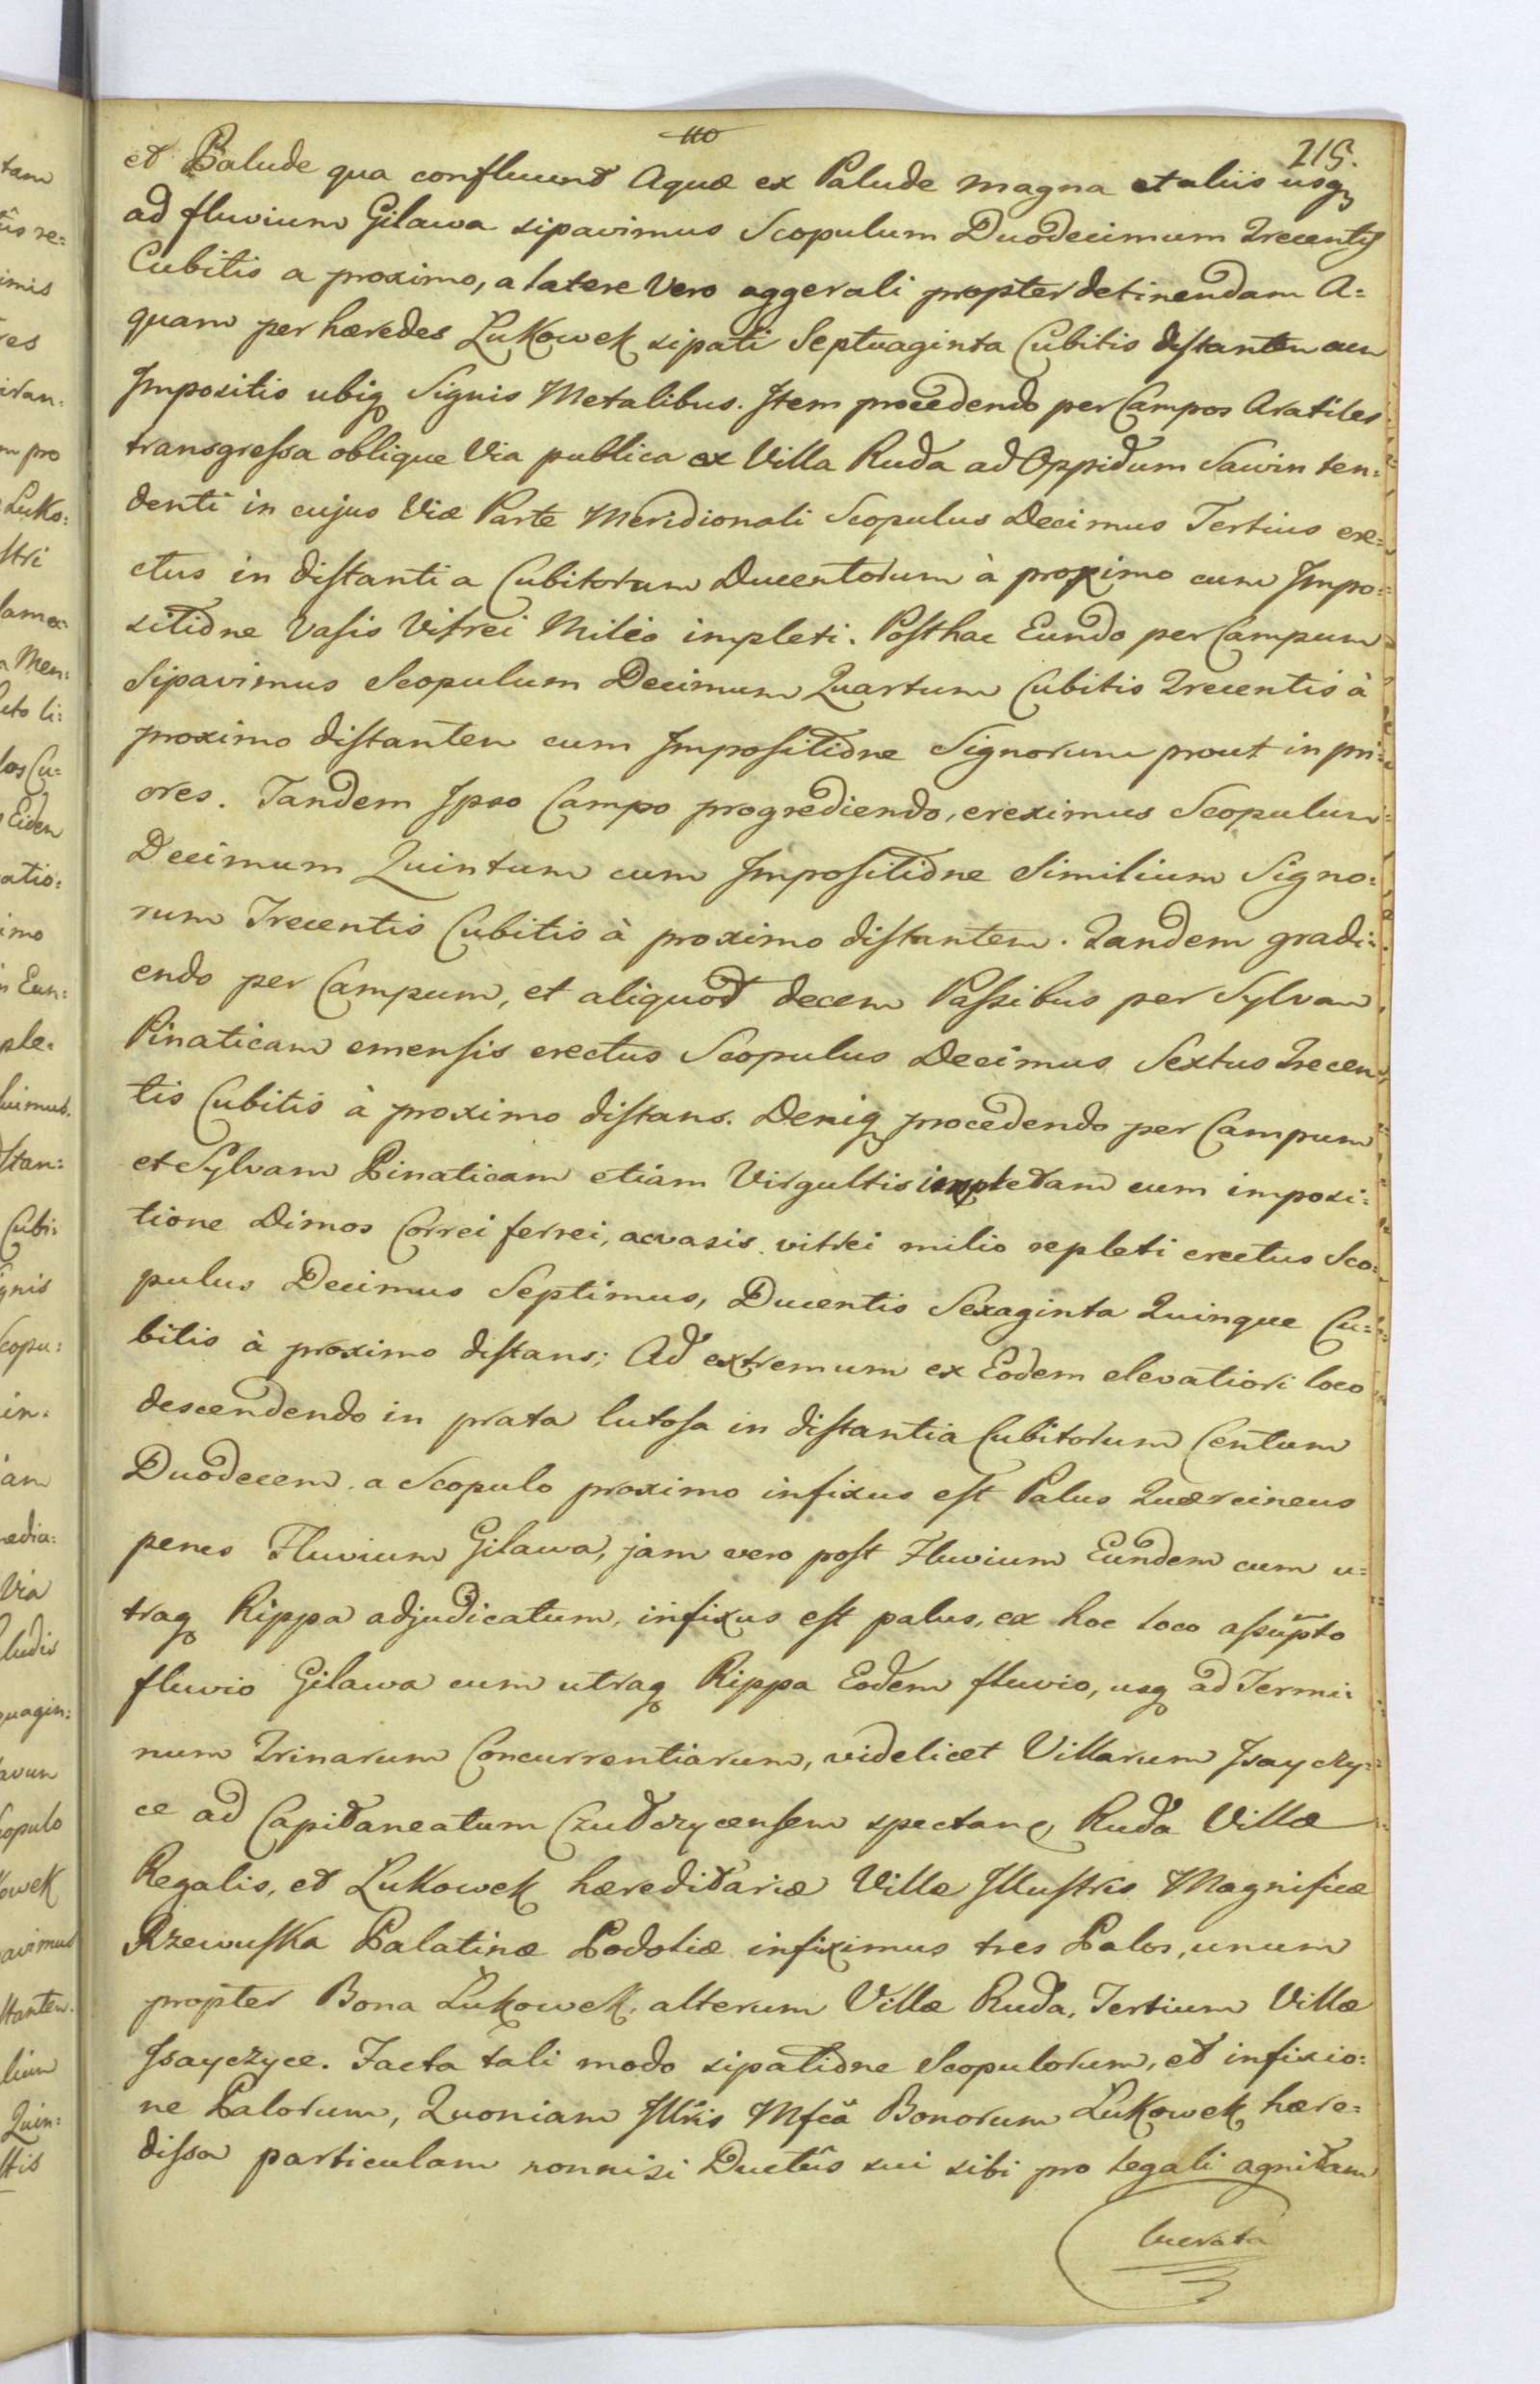 110
215.
et Palude qua confluunt Aquæ ex Palude magna et aliis usq
ad fluvium Gilawa sipavimus Scopulum Duodecimum Trecentis
Cubitis a proximo, a latere Vero aggerali propter detinendam A=
quam per hæredes Lukowek sipati Septuaginta Cubitis distantem cum
Impositis ubiq Signis Metalibus. Item procedendo per Campos Aratiles
transgressa oblique Via publica ex Villa Ruda ad Oppidum Sawin ten=
denti in cujus Viæ Parte Meridionali Scopulus Decimus Tertius ere=
ctus in distantia Cubitorum Ducentorum à proximo cum Impo=
sitione Vasis Vitrei Milio impleti. Posthac Eundo per Campum
Sipavimus Scopulum Decimum Quartum Cubitis Trecentis à
proximo distantem cum Impositione Signorum prout in pri=
ores. Tandem Ipso Campo progrediendo, ereximus Scopulum
Decimum Quintum cum Impositione Similium Signo=
rum Trecentis Cubitis à proximo distantem. Tandem gradi=
endo per Campum, et aliquod decem Passibus per Sylvam
Pinaticam emensis erectus Scopulus Decimus Sextus Trecen
tis Cubitis à proximo distans. Deniq procedendo per Campum
et Sylvam Pinaticam etiam Virgultis impletam cum imposi=
tione Dimos Correi ferrei, ac vasis vitrei milio repleti erectus Sco=
pulus Decimus Septimus, Ducentis Sexaginta Quinque Cu=
bitis à proximo distans; Ad extremum ex Eodem elevatiori loco
descendendo in prata lutosa in distantia Cubitorum Centum
Duodecem a Scopulo proximo infixus est Palus Quærcineus
penes Fluvium Gilawa, jam vero post Fluvium Eundem cum u=
traq Rippa adjudicatum, infixus est palus, ex hoc loco assũpto
fluvio Gilawa cum utraq Rippa Eodem fluvio, usq ad Termi=
num Trinarum Concurrentiarum, videlicet Villarum Isayczy=
ce ad Capitaneatum Czudczycensem spectan, Ruda Villæ
Regalis, et Lukowek hæreditariæ Villæ Illustris Magnificæ
Rzewuska Palatinæ Podoliæ infiximus tres Palos, unum
propter Bona Lukowek, alterum Villæ Ruda, Tertium Villæ
Isayczyce. Facta tali modo sipatione Scopulorum, et infixio=
ne Palorum, Quoniam Illris Mfca Bonorum Lukowek hære=
dissa particulam nonnisi Ductûs sui sibi pro legali agnitam